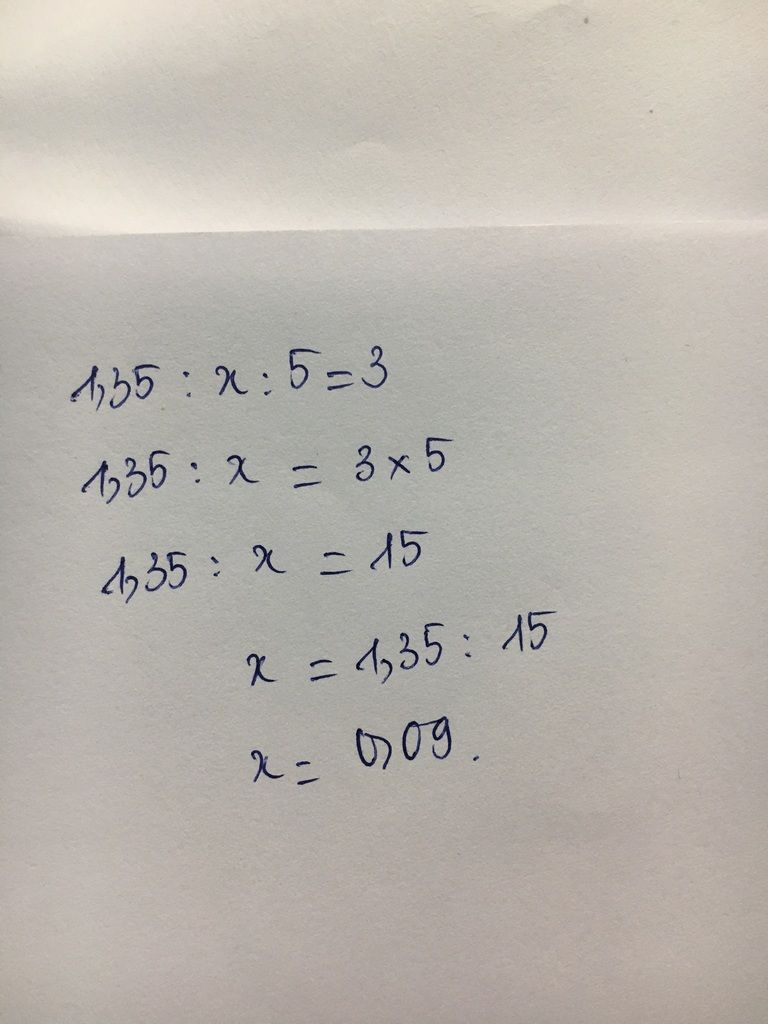 1,35 : x : 5 = 3
1,35 : x = 3 x 5
1,35 : x = 15
x = 1,35 : 15
x = 0,09.